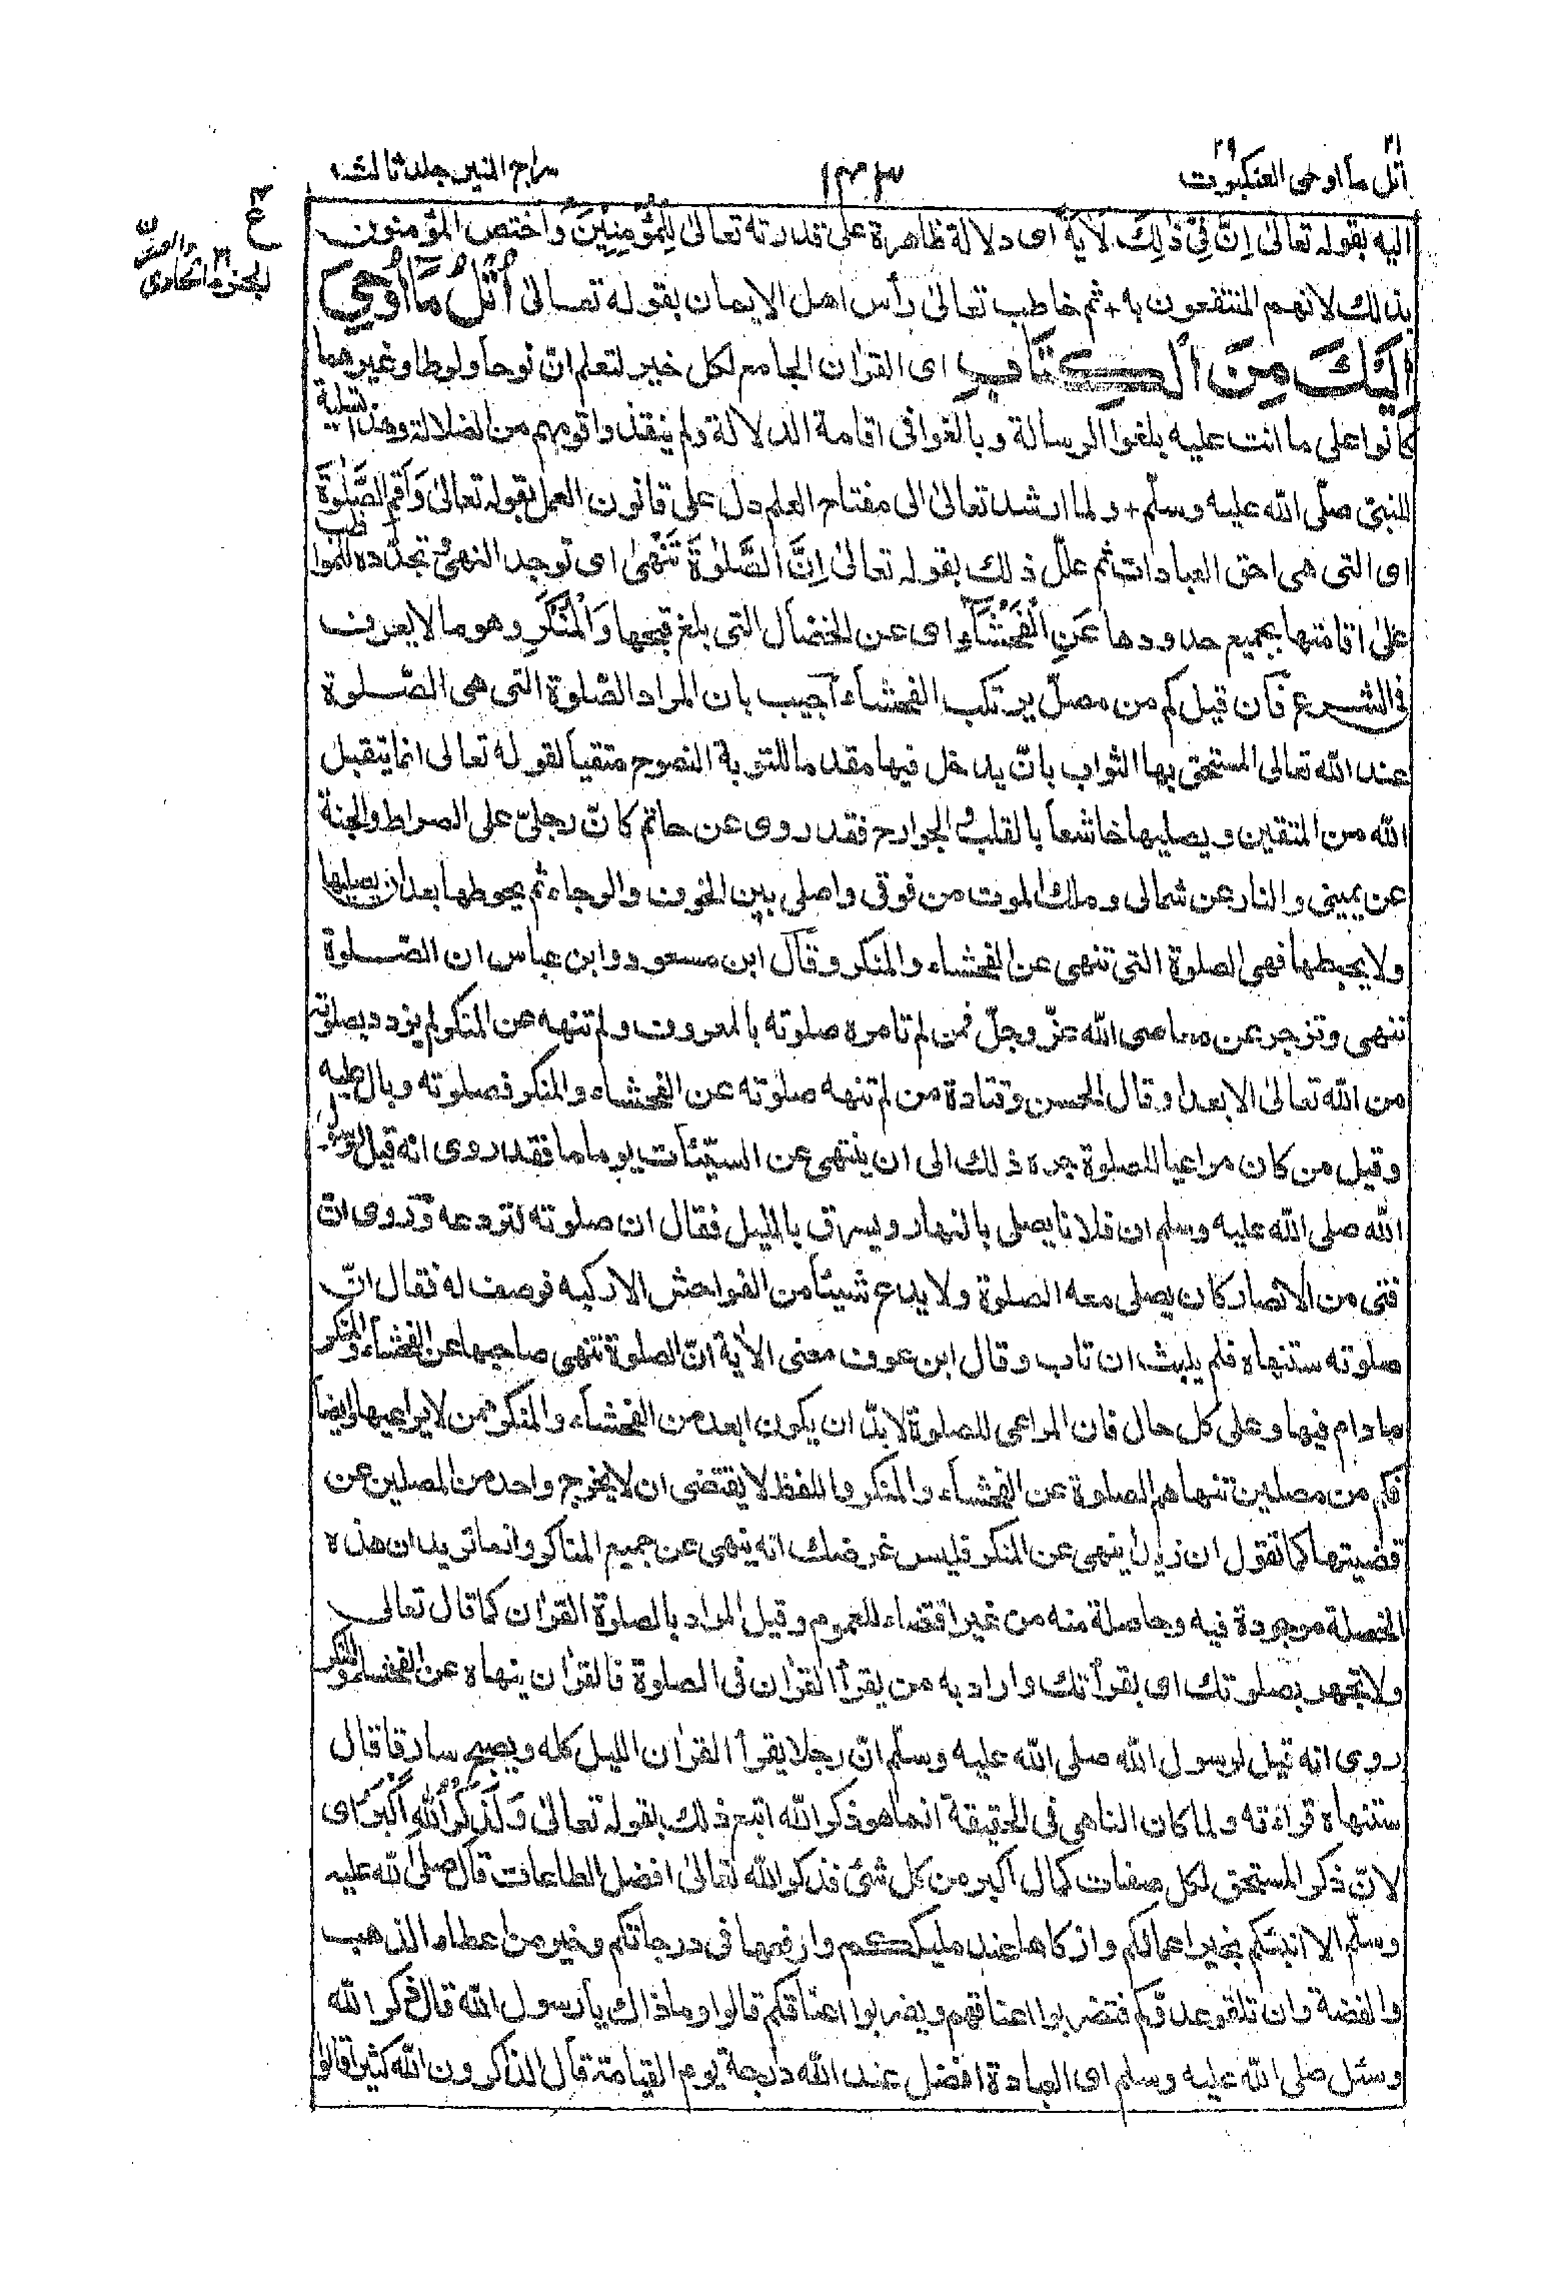 اتل ما اوحی ٢١ العنکبوت ٢٩
١٤٣
سراج المنیر جلد ثالث
ع
الجزء الحادی والعشرون ٢١
الیه بقوله تعالیٰ اِنَّ فِیْ ذٰلِكَ لَاٰیَةً ای دلالة ظاهرة علی قدرته تعالیٰ لِلْمُؤْمِنِیْنَ واختص المؤمنون
بذالك لانهم المنتفعون به + ثم خاطب تعالیٰ رأس اهل الایمان بقوله تعالیٰ اُتْلُ مَآ اُوْحِیَ
اِلَیْكَ مِنَ الْكِتَابِ ای القرآن الجامع لكل خیر لتعلم انّ نوحا ولوطا وغیرهما
كانوا علی ما انت علیه بلغوا الرسالة وبالغوا فی اقامة الدلالة ولم ینقذوا قومهم من الضلالة وهذا تسلیة
للنبیّ صلّی الله علیه وسلّم + ولما ارشد تعالیٰ الی مفتاح العلم دل علی قانون العمل بقوله تعالیٰ وَاَقِمِ الصَّلٰوةَ
ای التی هی احق العبادات ثم علّل ذلك بقوله تعالیٰ اِنَّ الصَّلٰوةَ تَنْهٰی ای توجد النهی وتجدّده للمواظب
علیٰ اقامتها بجمیع حدودها عَنِ الْفَحْشَآءِ ای عن الخصال التی بلغ قبحها وَالْمُنْكَرِ وهو ما لا یعرف
فی الشرع فان قیل كم من مصلّ یرتكب الفحشاء اجیب بان المراد الصّلوة التی هی الصّلوة
عند الله تعالی المستحق بها الثواب بانّ یدخل فیها مقدما للتوبة النصوح متقیا لقوله تعالی انما یتقبل
الله من المتقین ویصلیها خاشعا بالقلب والجوارح فقد روی عن حاتم كانّ رجلیّ علی الصراط والجنة
عن یمینی والنار عن شمالی وملك الموت من فوقی واصلی بین الخوف والرجاء ثم یحوطها بعد ان یصلیها
ولا یحبطها فهی الصلوة التی تنهی عن الفحشاء والمنكر وقال ابن مسعود وابن عباس ان الصّلوة
تنهی وتزجر عن معاصی الله عزّ وجلّ فمن لم تامره صلوته بالمعروف ولم تنهه عن المنكر لم یزدد بصلوته
من الله تعالیٰ الا بعدا وقال الحسن وقتادة من لم تنهه صلوته عن الفحشاء والمنكر فصلوته وبال علیه
وقیل من كان مراعیا للصلوة جره ذلك الی ان ینتهی عن السیّئات یوما ما فقد روی انه قیل لرسول
الله صلی الله علیه وسلم ان فلانا یصلی بالنهار ویسرق باللیل فقال ان صلوته لتردعه وروی انّ
فتی من الانصار كان یصلی معه الصلوة ولا یدع شیئا من الفواحش الا ركبه فوصف له فقال انّ
صلوته ستنهاه فلم یلبث ان تاب وقال ابن عوف معنی الاٰیة انّ الصلوة تنهی صاحبها عن الفحشاء والمنكر
ما دام فیها وعلی كل حال فان المراعی للصلوة لا بدّ ان یكون ابعد من الفحشاء والمنكر ممن لا یراعیها وایضا
فكم من مصلین تنهاهم الصلوة عن الفحشاء والمنكر واللفظ لا یقتضی ان لا یخرج واحد من المصلین عن
قضیتها كما تقول ان زیدا ینهی عن المنكر فلیس غرضك انه ینهی عن جمیع المناكر وانما ترید ان هذه
الخصلة موجودة فیه وحاصلة منه من غیر اقتضاء للعموم وقیل المراد بالصلوة القرآن كما قال تعالی
ولا تجهر بصلوتك ای بقراءتك واراد به من یقرأ القرآن فی الصلوة فالقرآن ینهاه عن الفحشاء والمنكر
روی انه قیل لرسول الله صلی الله علیه وسلّم انّ رجلا یقرأ القرآن اللیل كله ویصبح سارقا قال
ستنهاه قراءته ولما كان الناهی فی الحقیقة انما هو ذكر الله اتبع ذلك بقوله تعالیٰ وَلَذِكْرُ اللهِ اَكْبَرُ ای
لانّ ذكر المستحق لكل صفات كمال اكبر من كل شئ فذكر الله تعالیٰ افضل الطاعات قال صلّی الله علیه
وسلّم الا انبئكم بخیر اعمالكم وازكاها عند ملیككم وارفعها فی درجاتكم وخیر من اعطاء الذهب
والفضة وان تلقوا عدوّكم فتضربوا اعناقهم ویضربوا اعناقكم قالوا وما ذاك یا رسول الله قال ذكر الله
وسئل صلی الله علیه وسلم ای العبادة افضل عند الله درجة یوم القیامة قال الذاكرون الله كثیرا قالوا